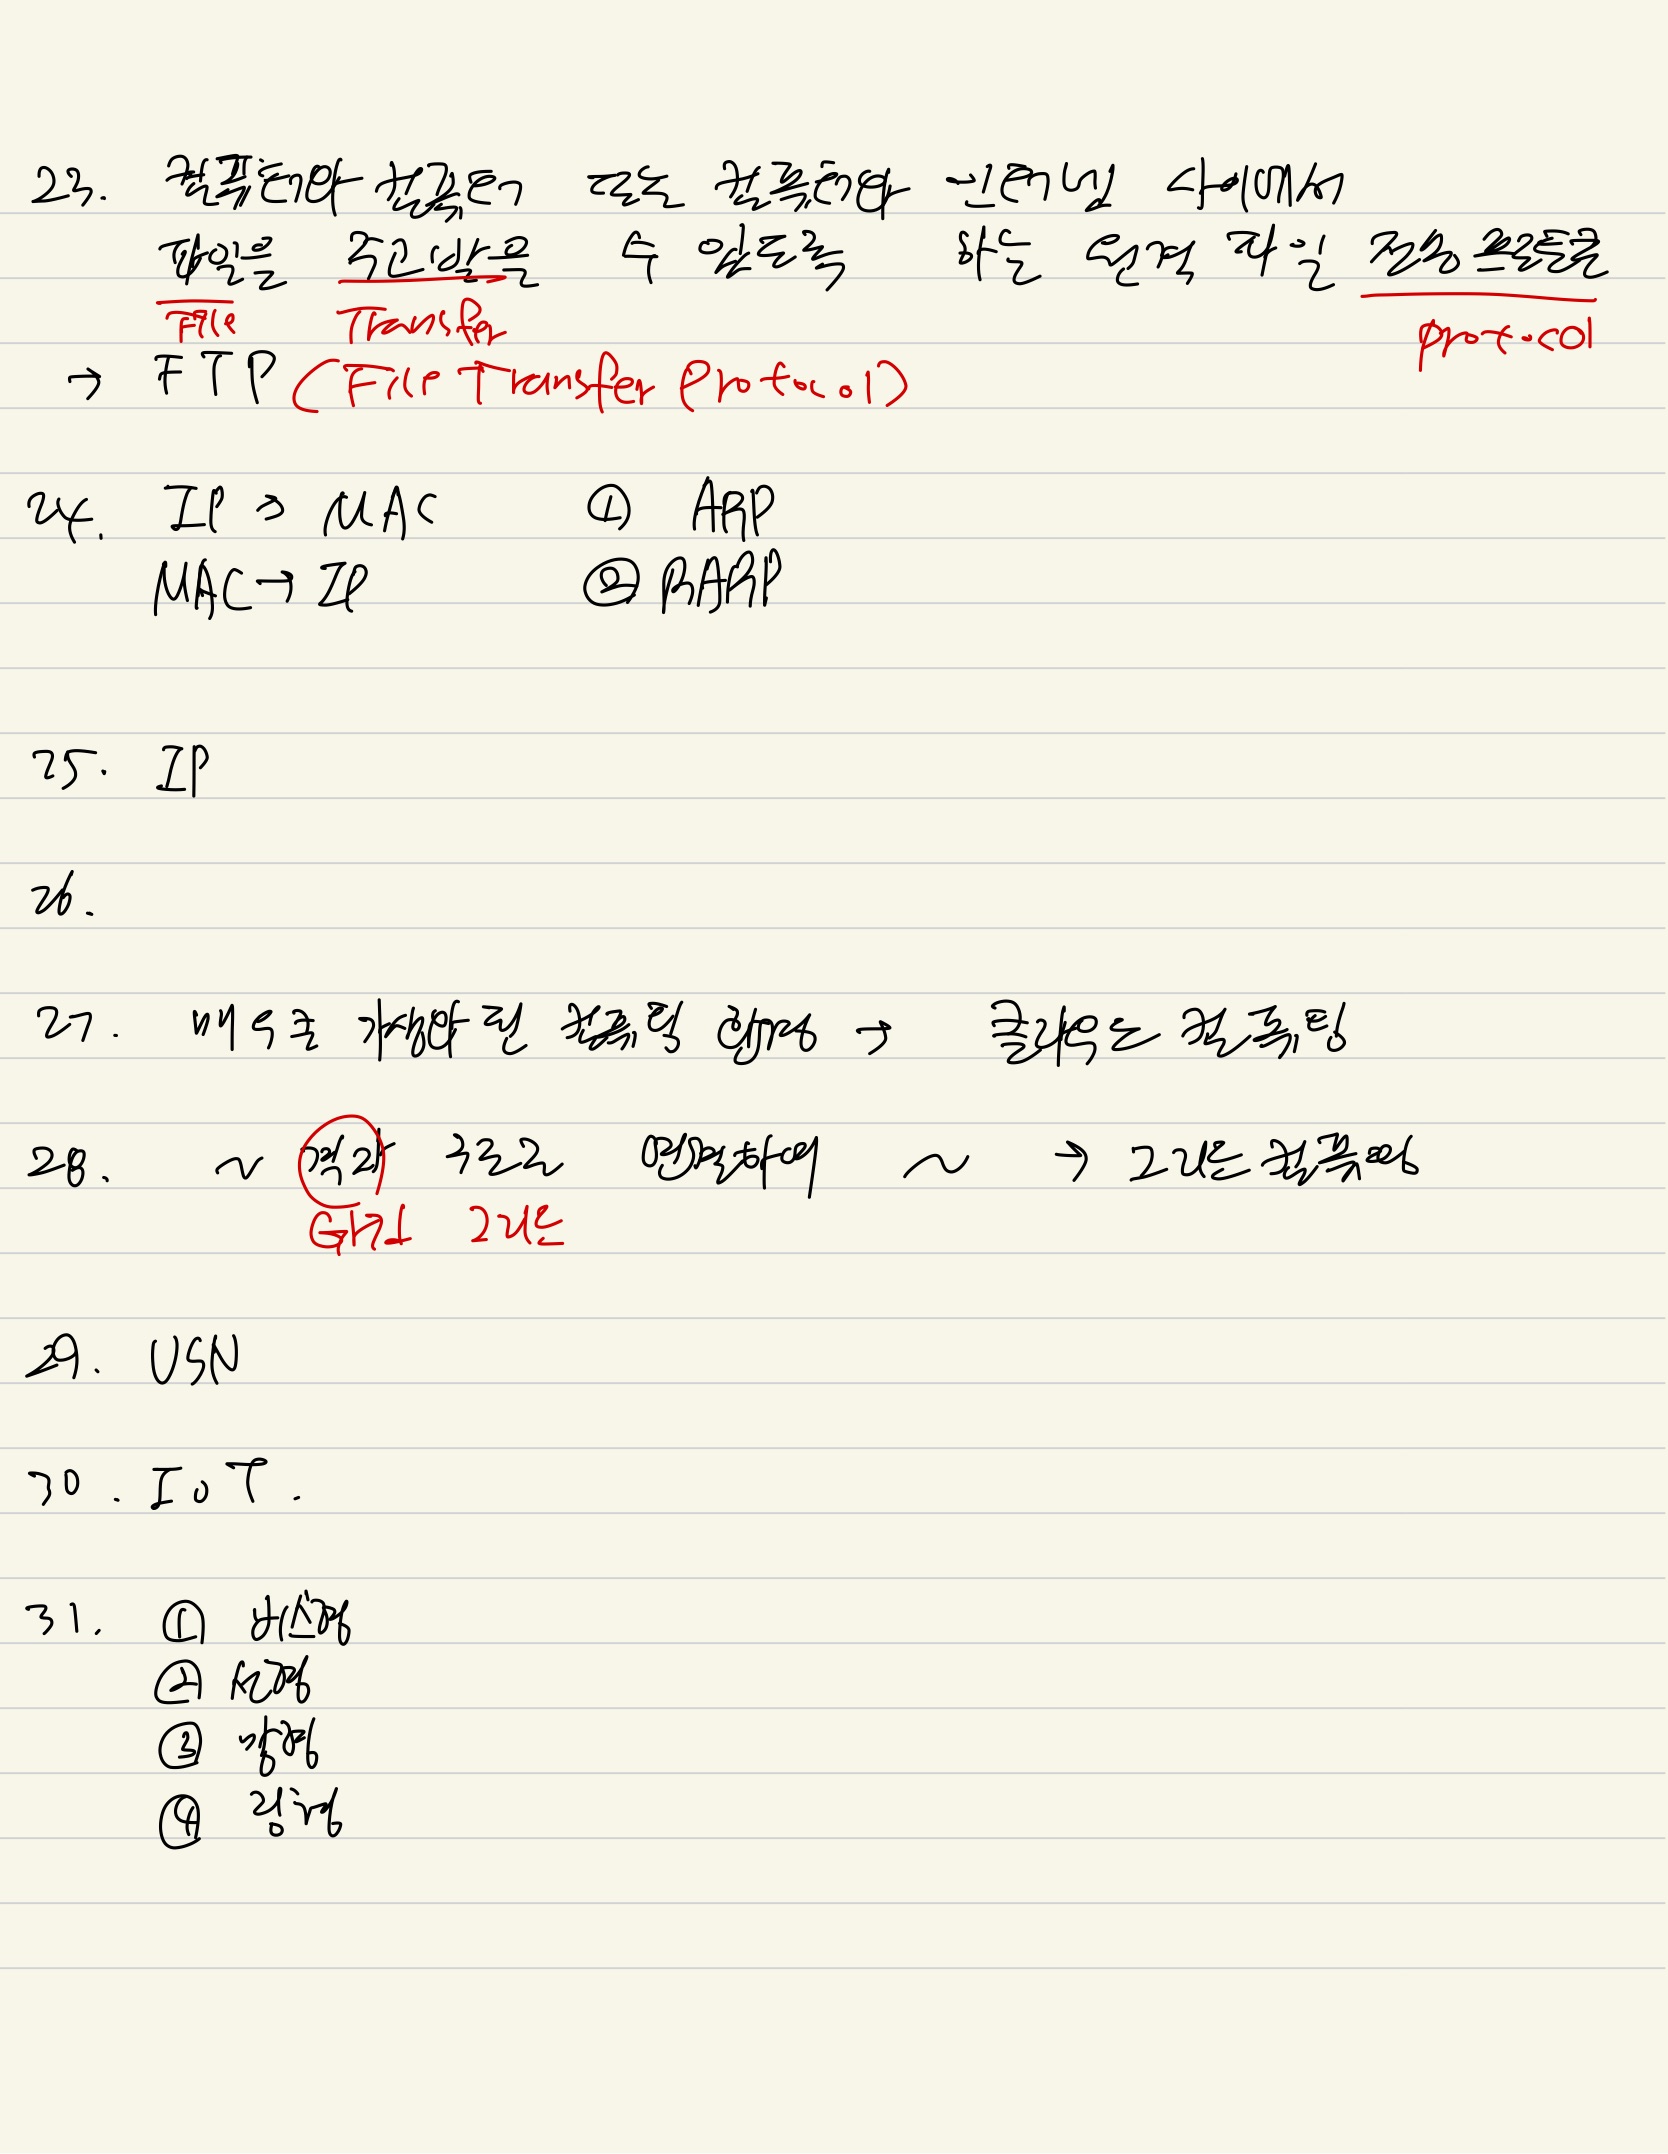 23. 컴퓨터와 컴퓨터 또는 컴퓨터와 인터넷 사이에서
파일을 주고받을 수 있도록 하는 원격 파일 전송 프로토콜
File Transfer protocol
→ FTP (File Transfer Protocol)
24. IP → MAC ① ARP
MAC → IP ② RARP
25. IP
26.
27. 매우로 가상화 된 컴퓨팅 환경 → 클라우드 컴퓨팅
28. ~ 격자 구조로 연결하여 ~ → 그리드 컴퓨팅
Grid 그리드
29. USN
30. IoT.
31. ① 버스형
② 성형
③ 망형
④ 링형